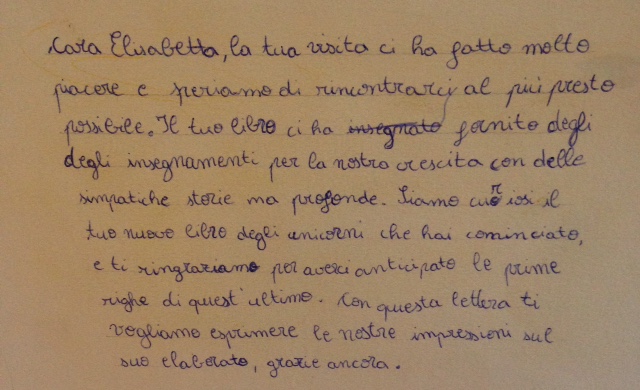 Cara Elisabetta, la tua visita ci ha fatto molto
piacere e speriamo di rincontrarci al più presto
possibile. Il tuo libro ci ha insegnato fornito degli
degli insegnamenti per la nostra crescita con delle
simpatiche storie ma profonde. Siamo curiosi il
tuo nuovo libro degli unicorni che hai cominciato,
e ti ringraziamo per averci anticipato le prime
righe di quest'ultimo. Con questa lettera ti
vogliamo esprimere le nostre impressioni sul
suo elaborato, grazie ancora.